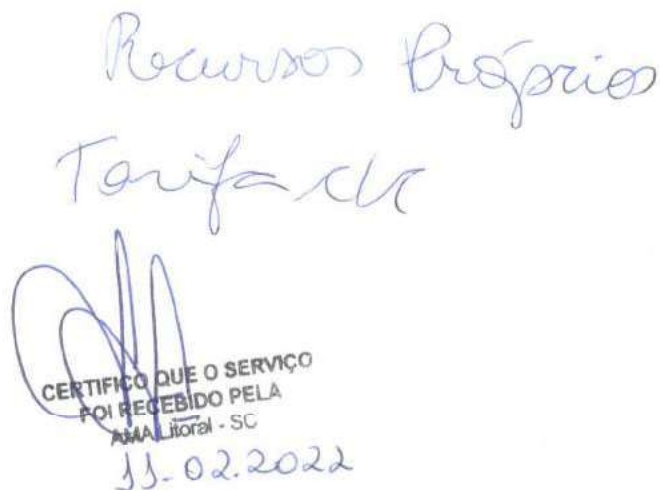 Recursos Próprios
Tarifa c/c
CERTIFICO QUE O SERVIÇO
FOI RECEBIDO PELA
AMA Litoral - SC
11.02.2022